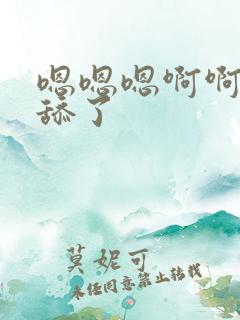 嗯嗯嗯啊啊
舔了
莫妮可
未经同意禁止转载